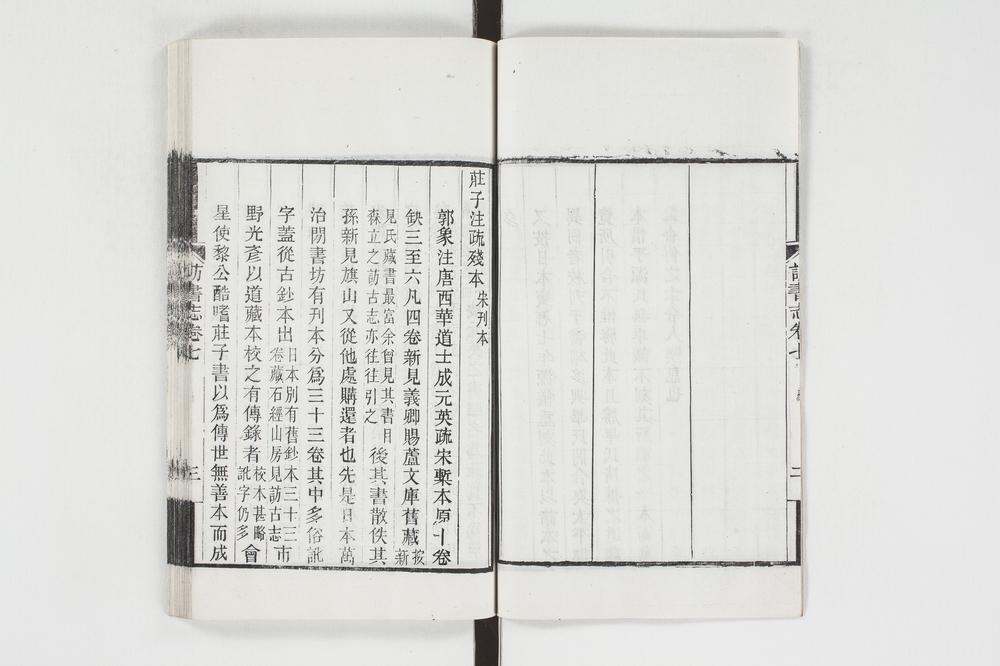 訪書志卷七
二
莊子注疏殘本 宋刊本
郭象注唐西華道士成元英疏宋槧本原十卷
缺三至六凡四卷新見義卿賜蘆文庫舊藏 按新
見氏藏書最富余曾見其書目
森立之訪古志亦往往引之 後其書散佚其
孫新見旗山又從他處購還者也先是日本萬
治閒書坊有刊本分爲三十三卷其中多俗訛
字蓋從古鈔本出 日本別有舊鈔本三十三
卷藏石經山房見訪古志 市
野光彥以道藏本校之有傳錄者 校本甚略
訛字仍多 會
星使黎公酷嗜莊子書以爲傳世無善本而成
訪書志卷七
三